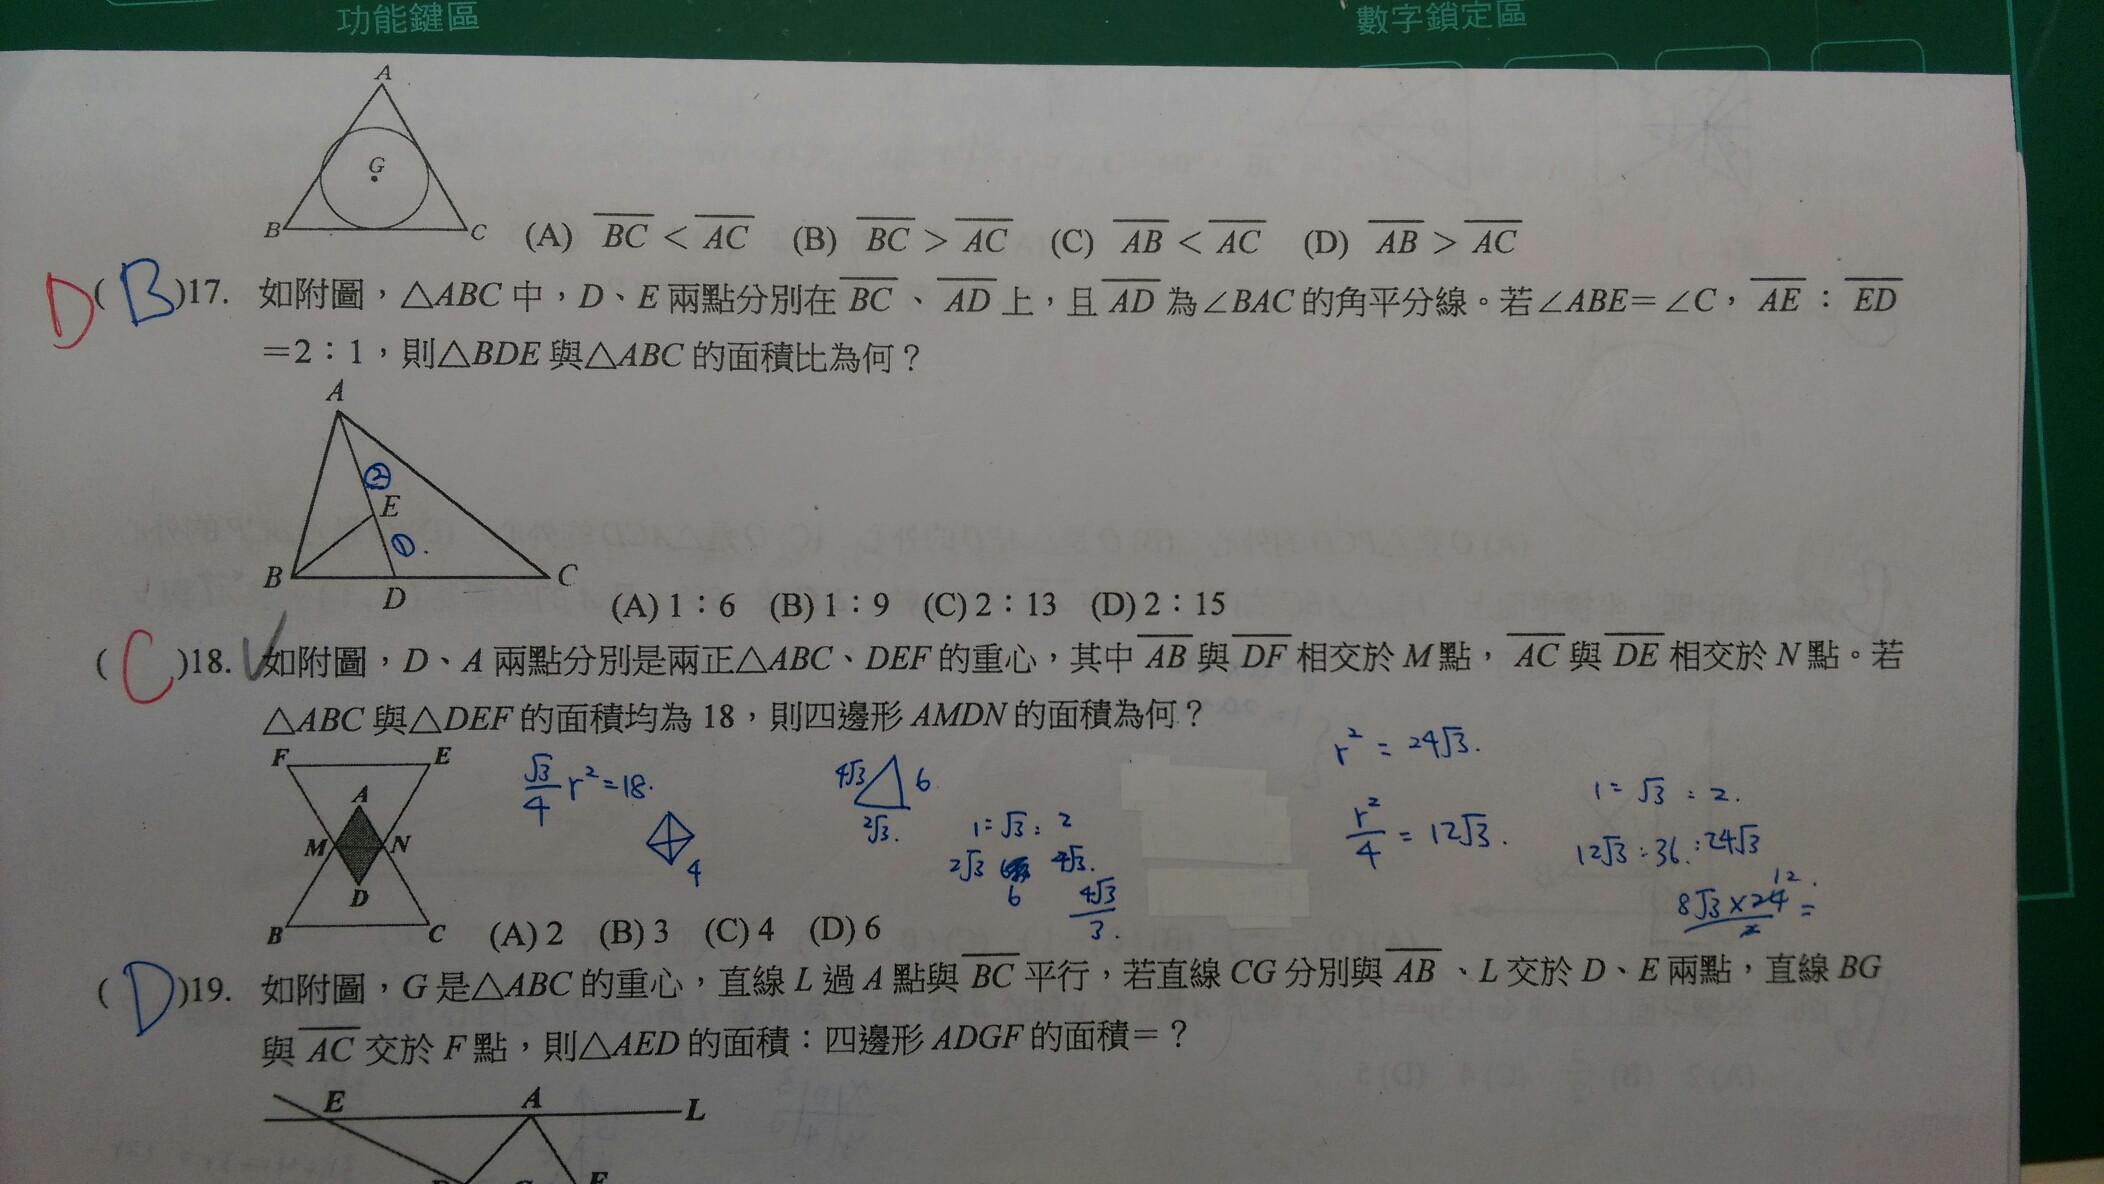 功能鍵區 數字鎖定區
A
G
B C (A) BC < AC (B) BC > AC (C) AB < AC (D) AB > AC
D ( B )17. 如附圖，△ABC 中，D、E 兩點分別在 BC 、 AD 上，且 AD 為∠BAC 的角平分線。若∠ABE=∠C，AE：ED
=2：1，則△BDE 與△ABC 的面積比為何？
A
②
E
①.
B D C (A) 1：6 (B) 1：9 (C) 2：13 (D) 2：15
( C )18. 如附圖，D、A 兩點分別是兩正△ABC、DEF 的重心，其中 AB 與 DF 相交於 M 點， AC 與 DE 相交於 N 點。若
△ABC 與△DEF 的面積均為 18，則四邊形 AMDN 的面積為何？
F E
A
M N
D
B C
√3/4 r² = 18.
4
4√3 6
2√3.
1 : √3 : 2
2√3 6 4√3.
4√3/3.
r² = 24√3.
r²/4 = 12√3.
1 : √3 : 2.
12√3 : 36. : 24√3
12.
8√3 × 24/2 =
(A) 2 (B) 3 (C) 4 (D) 6
( D )19. 如附圖，G 是△ABC 的重心，直線 L 過 A 點與 BC 平行，若直線 CG 分別與 AB 、L 交於 D、E 兩點，直線 BG
與 AC 交於 F 點，則△AED 的面積：四邊形 ADGF 的面積=？
E A L
F